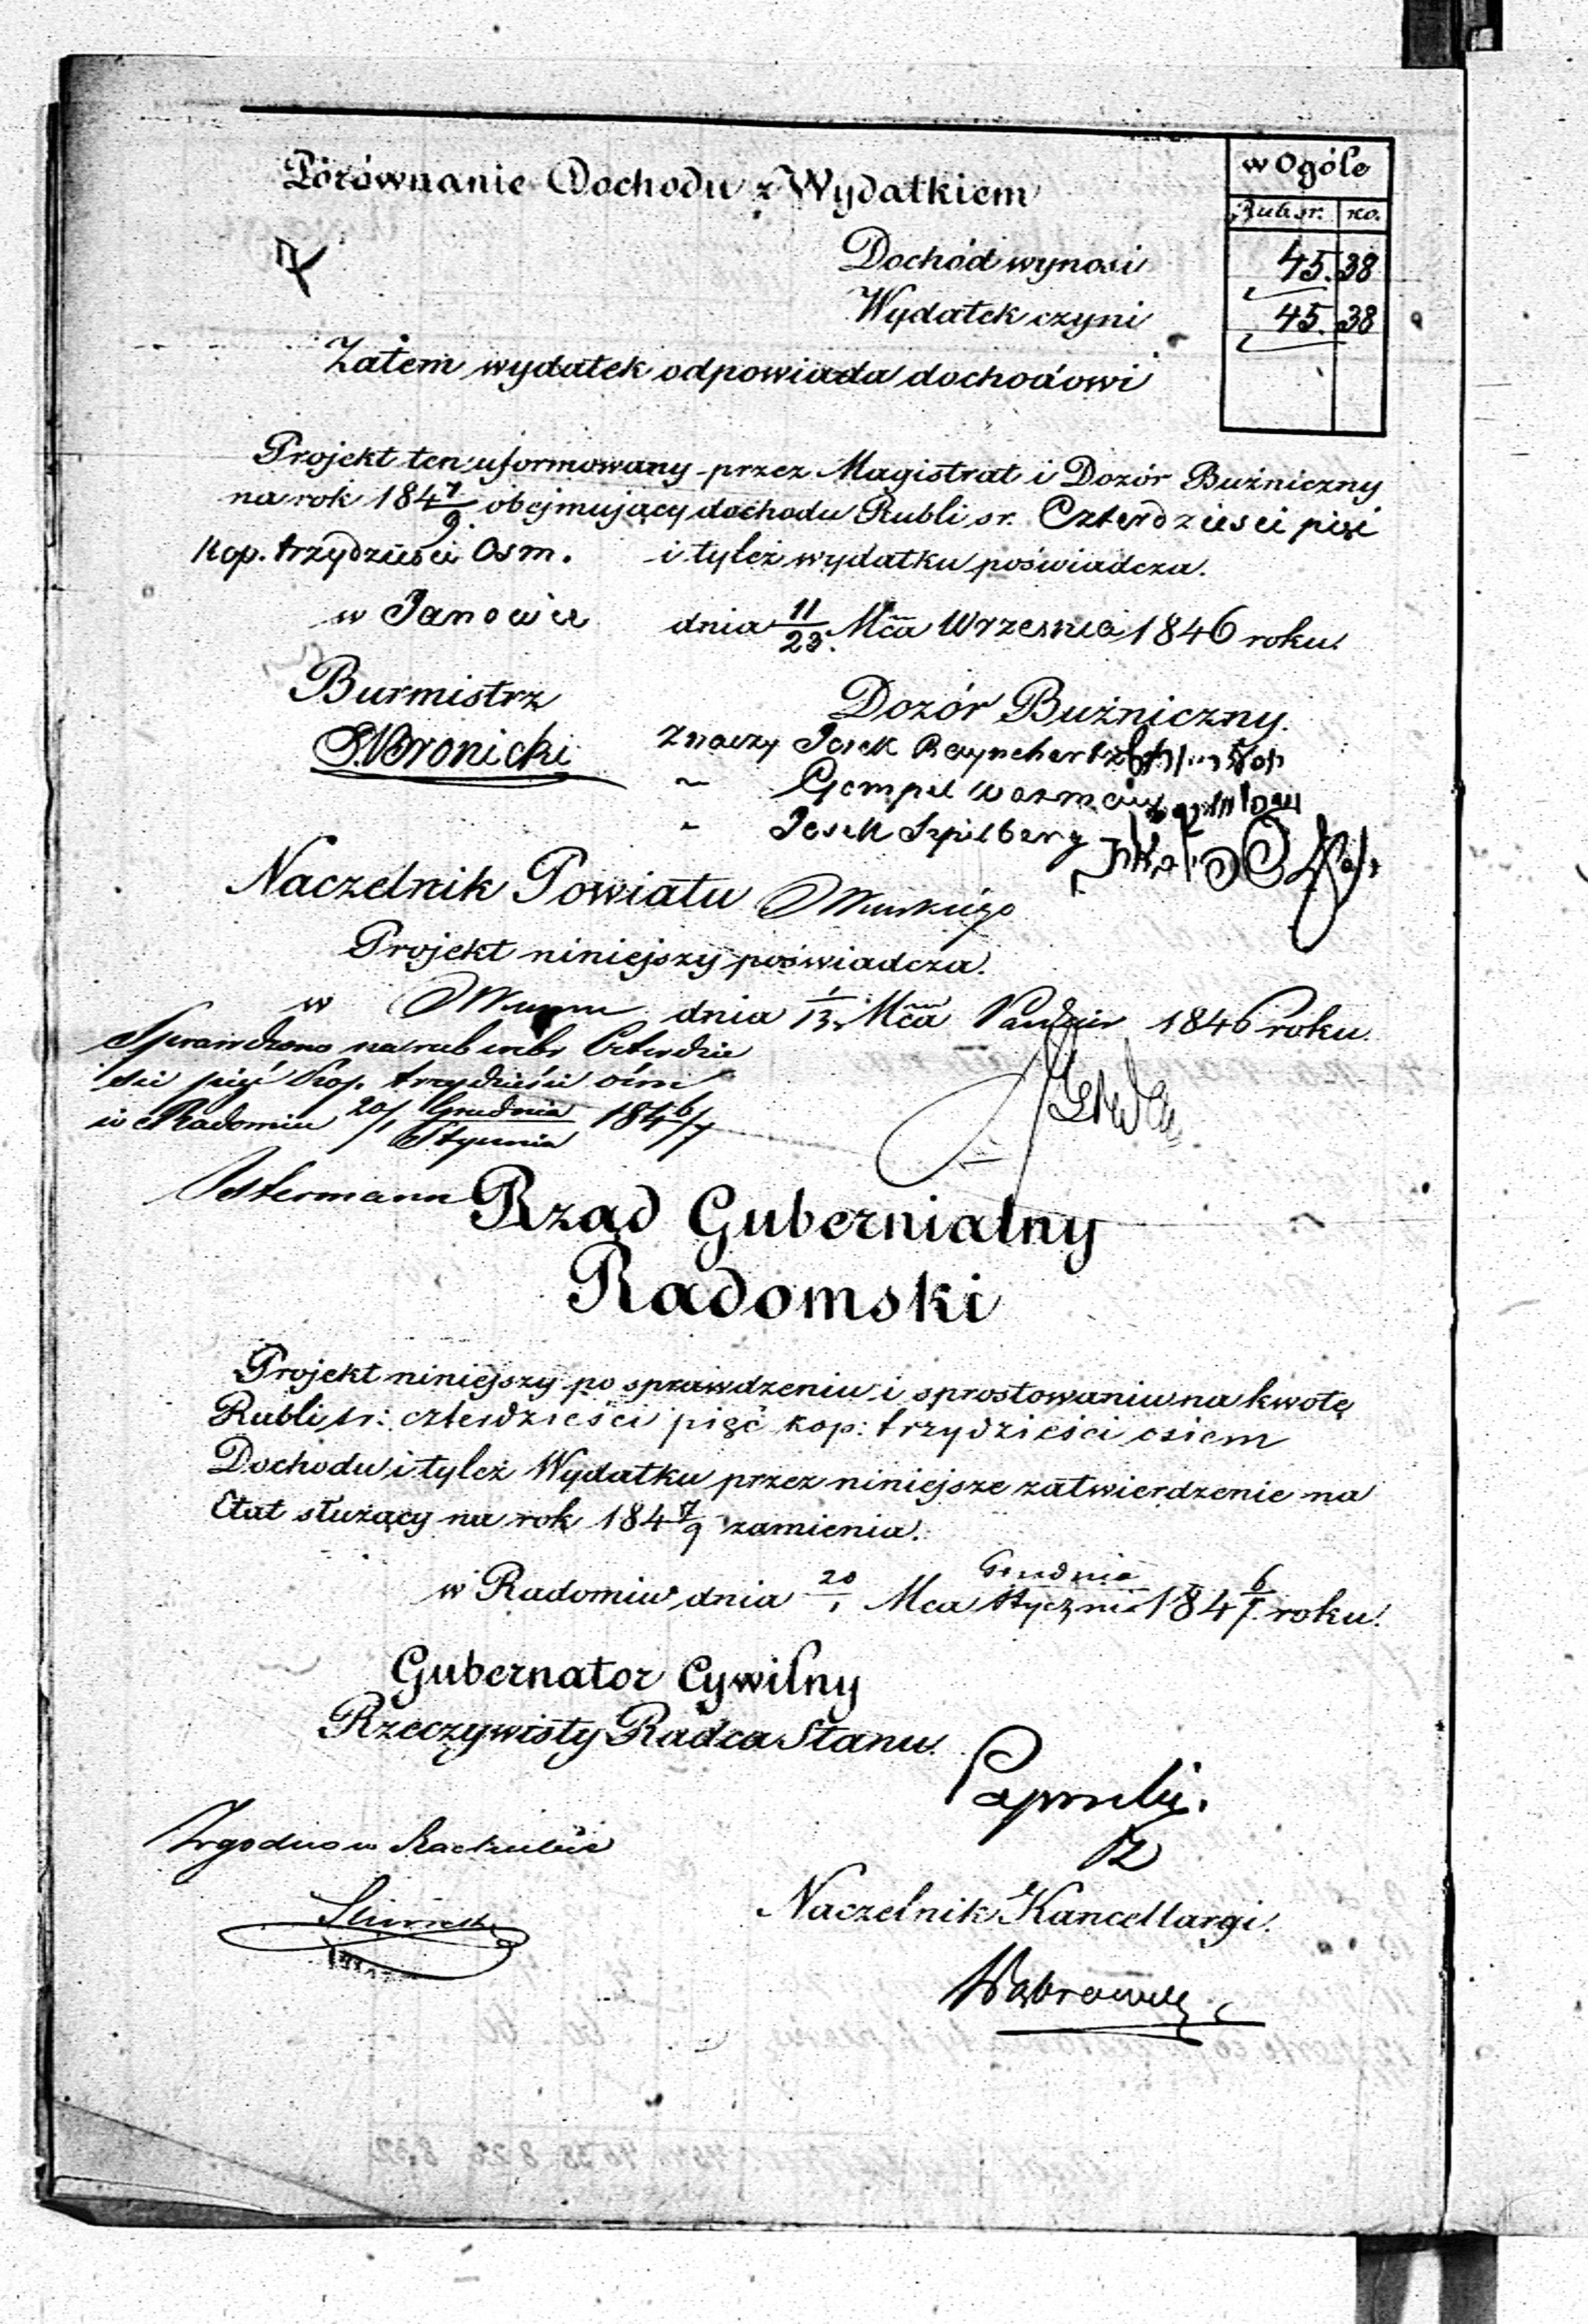 Porównanie Dochodu z Wydatkiem
w Ogóle
Rub sr. ko.
Dochód wynosi 45. 38
Wydatek czyni 45. 38
Zatem wydatek odpowiada dochodowi
Projekt ten uformowany przez Magistrat i Dozór Bużniczny
na rok 184 7/9. obejmujący dochodu Rubli sr. Czterdzieści pięć
Kop. trzydzieści Osm. i tyleż wydatku poświadcza.
w Janowie dnia 11/23. Mca Wrzesnia 1846 roku.
Burmistrz
Dozór Bużniczny.
Znaczy Josek
Gompel
Josek Szpilberg
Naczelnik Powiatu
Projekt niniejszy poświadcza.
w dnia 1/13. Mca 1846 roku.
Sprawdzono na rub srebr Czterdzie
ści pięć Kop. trzydzieści ośm
w Radomiu 20/1 Grudnia/Stycznia 184 6/7
Rząd Gubernialny
Radomski
Projekt niniejszy po sprawdzeniu i sprostowaniu na kwotę
Rubli sr: czterdzieści pięć kop: trzydzieści osiem
Dochodu i tyleż Wydatku przez niniejsze zatwierdzenie na
Etat służący na rok 184 7/9 zamienia.
w Radomiu dnia 20/1 Mca Grudnia/Stycznia 184 6/7 roku.
Gubernator Cywilny
Rzeczywisty Radca Stanu.
Zgodno w Rachubie
Naczelnik Kancellaryi.